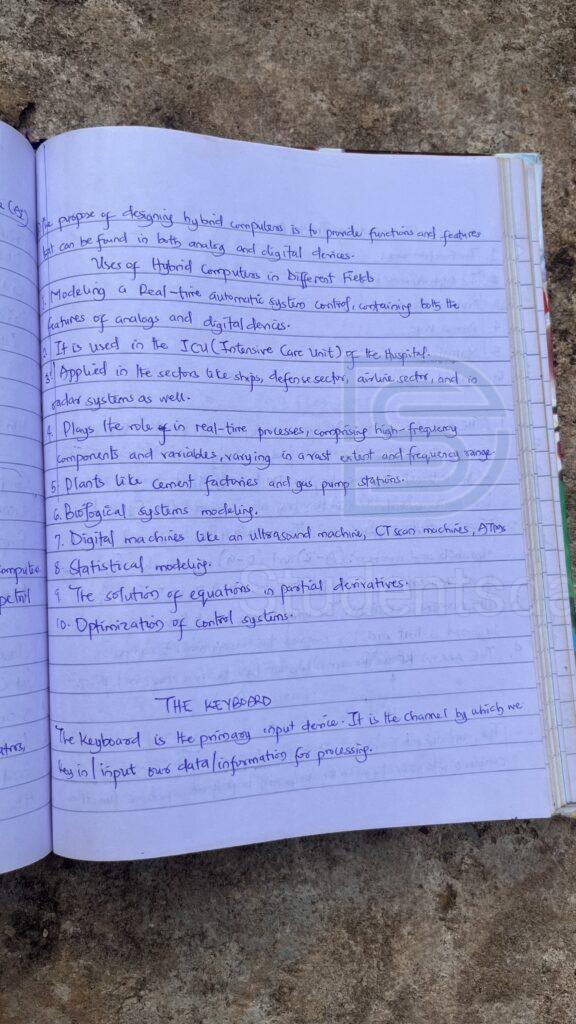 The propose of designing hybrid computers is to provide functions and features
that can be found in both analog and digital devices.
Uses of Hybrid Computers in Different Fields
1. Modeling a Real-time automatic system control, containing both the
features of analogs and digital devices.
2. It is used in the ICU (Intensive Care Unit) of the Hospital.
3. Applied in the sectors like ships, defense sector, airline sector, and in
radar systems as well.
4. Plays the role of in real-time processes, comprising high-frequency
components and variables, varying in a vast extent and frequency range.
5. Plants like cement factories and gas pump stations.
6. Biological systems modeling.
7. Digital machines like an ultrasound machine, CT scan machines, ATMs
8. Statistical modeling.
9. The solution of equations in partial derivatives.
10. Optimization of control systems.
THE KEYBOARD
The Keyboard is the primary input device. It is the channel by which we
key in/input our data/information for processing.
computer
petrol
Students